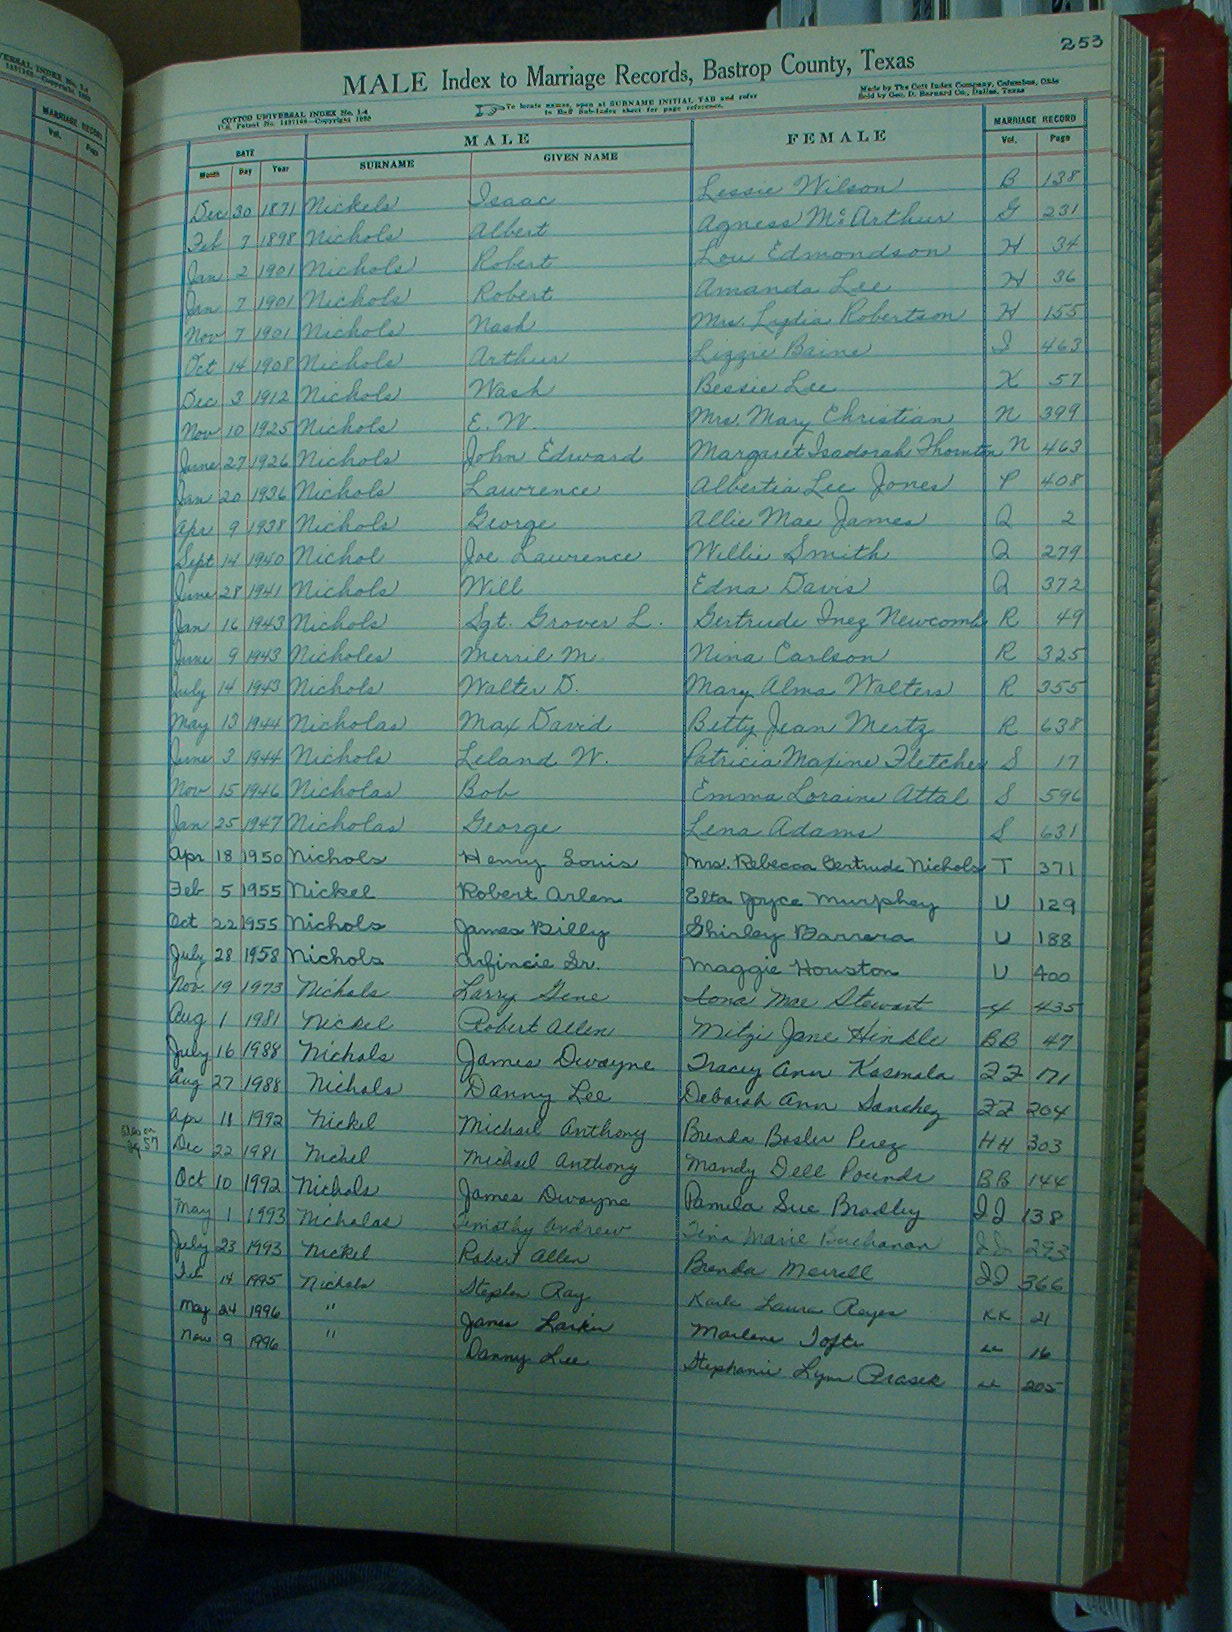 253
MALE Index to Marriage Records, Bastrop County, Texas
COTTCO UNIVERSAL INDEX No. 1-4
To locate names, open at SURNAME INITIAL TAB and refer
to Buff Sub-Index sheet for page reference.
Made by The Cott Index Company, Columbus, Ohio
Sold by Geo. D. Barnard Co., Dallas, Texas
MARRIAGE RECORD
Vol. Page
DATE MALE FEMALE MARRIAGE RECORD
Month Day Year SURNAME GIVEN NAME Vol. Page
Dec 30 1871 Nickels Isaac Lessie Wilson B 138
Feb 7 1898 Nichols Albert Agness McArthur G 231
Jan 2 1901 Nichols Robert Lou Edmondson H 34
Jan 7 1901 Nichols Robert Amanda Lee H 36
Nov 7 1901 Nichols Nash Mrs. Lydia Robertson H 155
Oct 14 1908 Nichols Arthur Lizzie Baine I 463
Dec 3 1912 Nichols Wash Bessie Lee K 57
Nov 10 1925 Nichols E. W. Mrs. Mary Christian N 399
June 27 1926 Nichols John Edward Margaret Isadorah Thornton N 463
Jan 20 1936 Nichols Lawrence Albertia Lee Jones P 408
Apr 9 1938 Nichols George Allie Mae James Q 2
Sept 14 1940 Nichol Joe Lawrence Willie Smith Q 279
June 28 1941 Nichols Will Edna Davis Q 372
Jan 16 1943 Nichols Sgt. Grover L. Gertrude Inez Newcomb R 49
June 9 1943 Nicholes Merril M. Nina Carlson R 325
July 14 1943 Nichols Walter D. Mary Alma Walters R 355
May 13 1944 Nicholas Max David Betty Jean Mertz R 638
June 3 1944 Nichols Leland W. Patricia Maxine Fletcher S 17
Nov 15 1946 Nicholas Bob Emma Loraine Attal S 596
Jan 25 1947 Nicholas George Lena Adams S 631
Apr 18 1950 Nichols Henry Louis Mrs. Rebecca Gertrude Nichols T 371
Feb 5 1955 Nickel Robert Arlen Elta Joyce Murphey U 129
Oct 22 1955 Nichols James Billy Shirley Barrera U 188
July 28 1958 Nichols Arfincie Sr. Maggie Houston U 400
Nov. 19 1973 Nichols Larry Gene Iona Mae Stewart 435
Aug 1 1981 Nickel Robert Allen Mitzi Jane Hinkle BB 47
July 16 1988 Nichols James Dwayne Tracey Ann Kosmala FF 171
Aug 27 1988 Nichols Danny Lee Deborah Ann Sanchez FF 204
Apr 11 1992 Nickel Michael Anthony Brenda Bosler Perez HH 303
57
Dec 22 1981 Nickel Michael Anthony Mandy Dell Pounds BB 144
Oct 10 1992 Nichols James Dwayne Pamela Sue Bradley II 138
May 1 1993 Nicholas Timothy Andrew Tina Marie Buchanan II 293
July 23 1993 Nickel Robert Allen Brenda Merrell II 366
Feb 14 1995 Nichols Stephen Ray Karla Laura Reyes KK 21
May 24 1996 " James Larkin Marlene Tofte LL 16
Nov 9 1996 " Danny Lee Stephanie Lynn Prasek LL 205